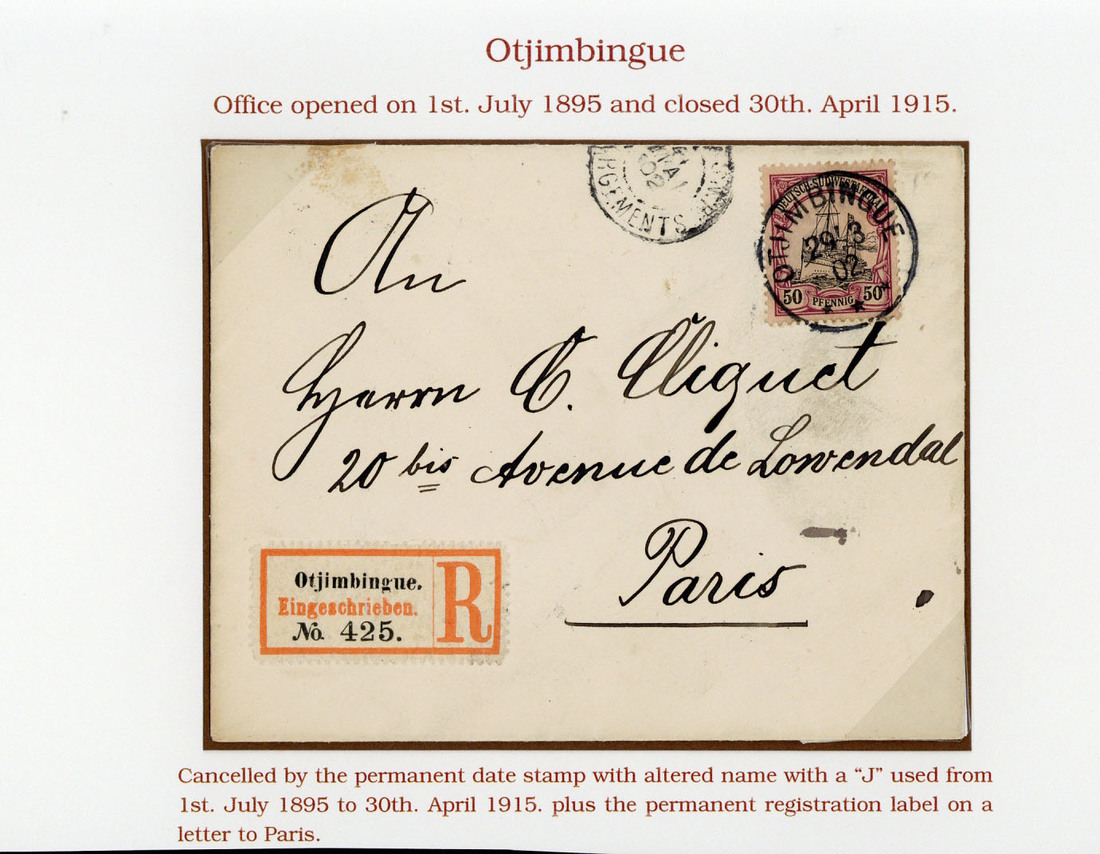 Otjimbingue
Office opened on 1st. July 1895 and closed 30th. April 1915.
CHARGEMENTS
02
DEUTSCH-SÜDWESTAFRIKA
OTJIMBINGUE
29 3
02
50 PFENNIG 50
An
Herrn C. Cliquet
20 bis Avenue de Lowendal
Paris
Otjimbingue.
Eingeschrieben.
No. 425.
R
Cancelled by the permanent date stamp with altered name with a “J” used from
1st. July 1895 to 30th. April 1915. plus the permanent registration label on a
letter to Paris.